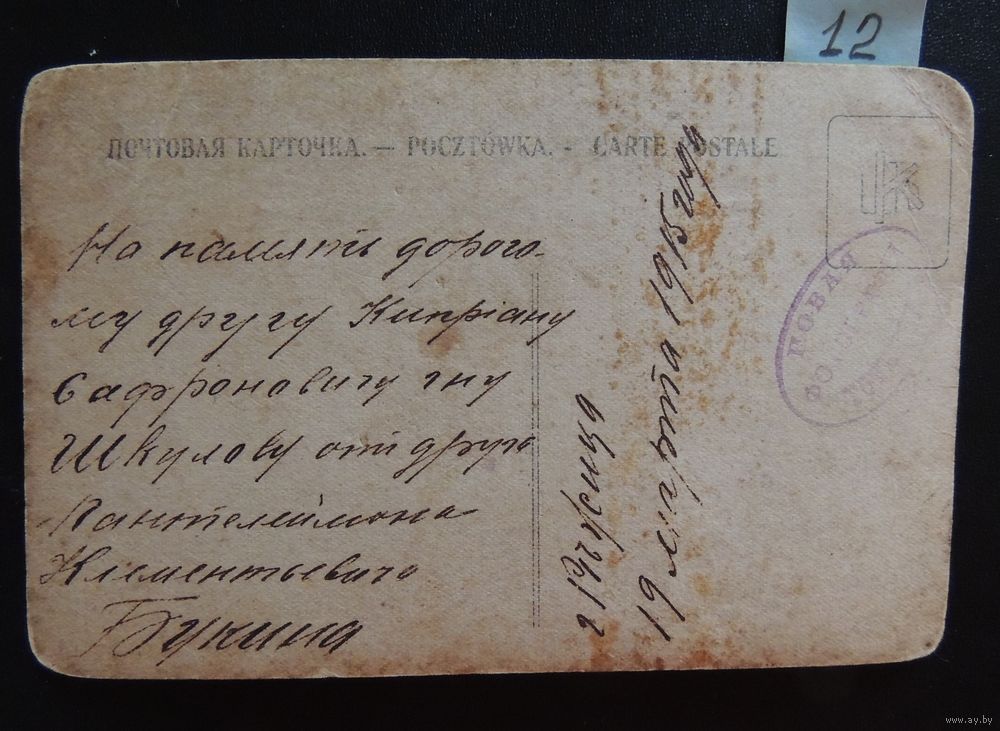 12
ПОЧТОВАЯ КАРТОЧКА. — POCZTÓWKA. - CARTE POSTALE
На память дорого-
му другу Кипріану
Сафроновичу гну
Шкулову отъ друга
Пантелеймона
Клементьевича
Букина
19 марта 1915 года
www.ay.by